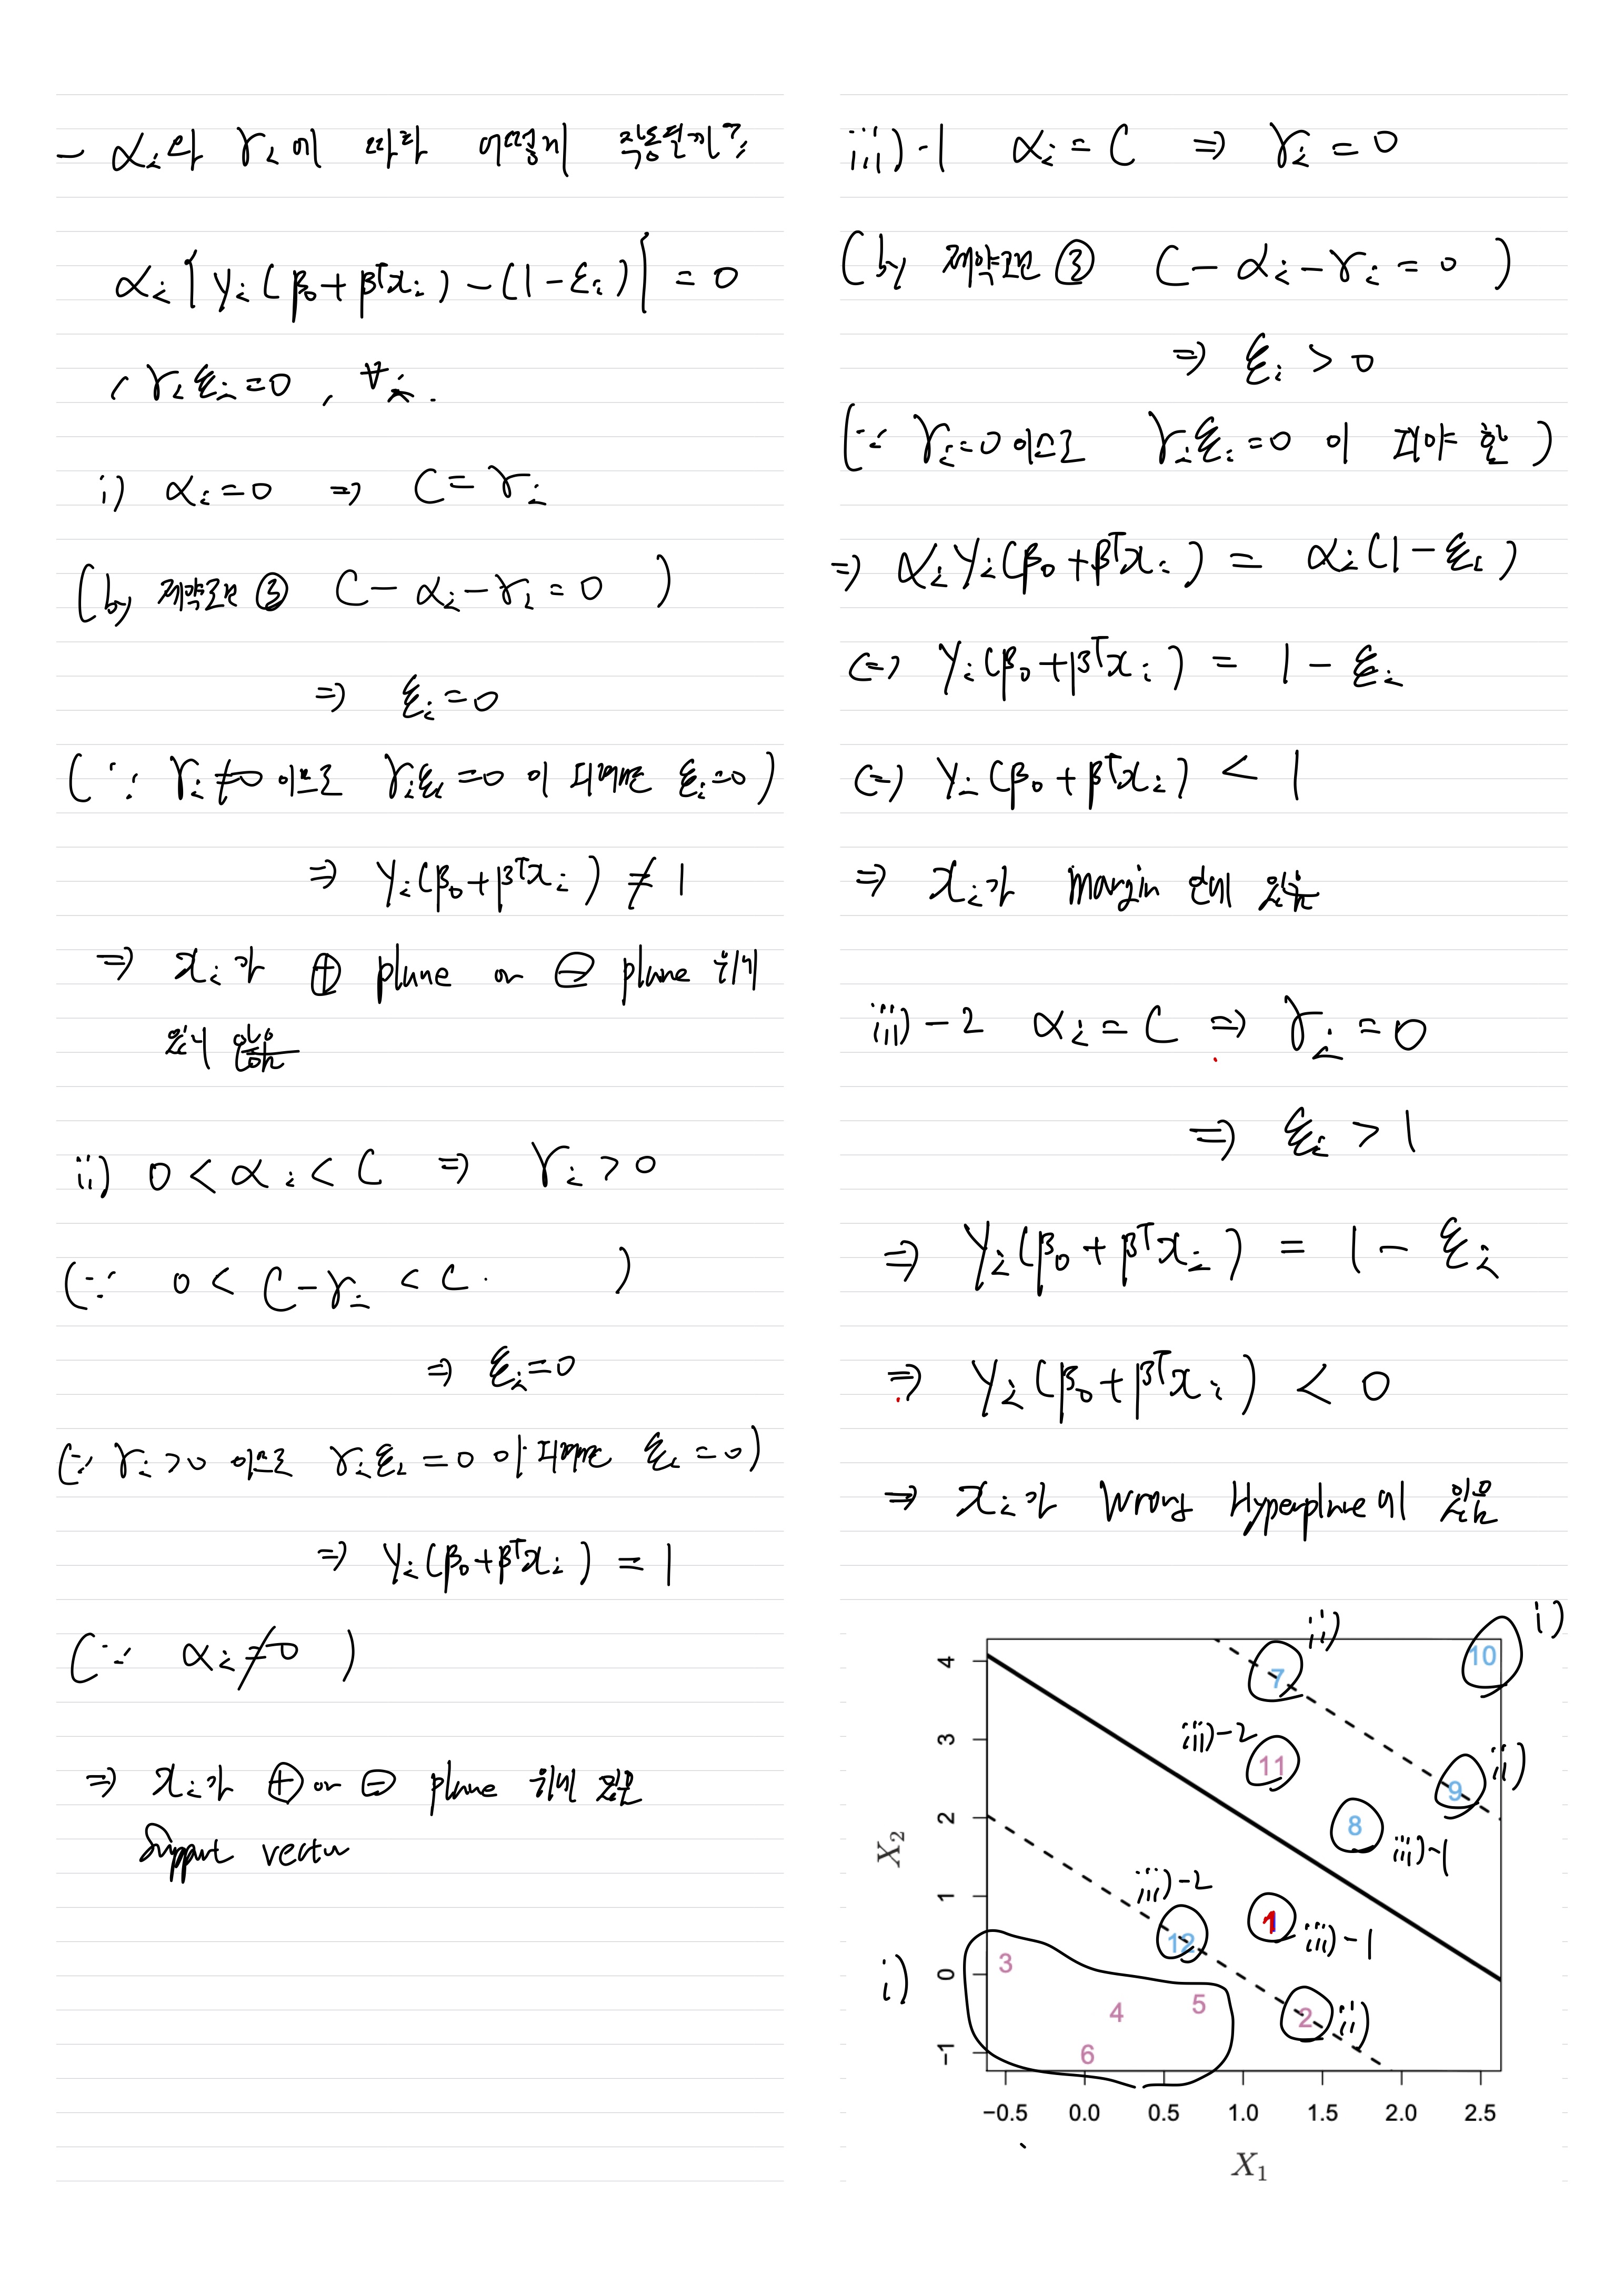 - αi와 γi에 따라 어떻게 작동될까?
αi{yi(β0+βᵀxi)-(1-ξi)} = 0
, γiξi=0, ∀i.
i) αi=0 ⇒ C=γi
(by 제약조건 ③ C-αi-γi=0)
⇒ ξi=0
(∵ γi≠0 이므로 γiξi=0 이 되려면 ξi=0)
⇒ yi(β0+βᵀxi) ≠ 1
⇒ xi가 ⊕ plane or ⊖ plane 위에
있지 않음
ii) 0<αi<C ⇒ γi>0
(∵ 0<C-γi<C.)
⇒ ξi=0
(∵ γi>0 이므로 γiξi=0 이 되려면 ξi=0)
⇒ yi(β0+βᵀxi) = 1
(∵ αi≠0)
⇒ xi가 ⊕ or ⊖ plane 위에 있음
Support vector
iii)-1 αi=C ⇒ γi=0
(by 제약조건 ③ C-αi-γi=0)
⇒ ξi>0
(∵ γi=0 이므로 γiξi=0 이 되야 함)
⇒ αiyi(β0+βᵀxi) = αi(1-ξi)
⇔ yi(β0+βᵀxi) = 1-ξi
⇔ yi(β0+βᵀxi) < 1
⇒ xi가 margin 안에 있음
iii)-2 αi=C ⇒ γi=0
⇒ ξi>1
⇒ yi(β0+βᵀxi) = 1-ξi
⇒ yi(β0+βᵀxi) < 0
⇒ xi가 Wrong Hyperplane에 있음
ii) i)
4 7 10
3 iii)-2 11 9 ii)
2 8 iii)-1
X2
1 iii)-2 1 iii)-1
12
i) 0 3
4 5 2 ii)
-1 6
-0.5 0.0 0.5 1.0 1.5 2.0 2.5
X1